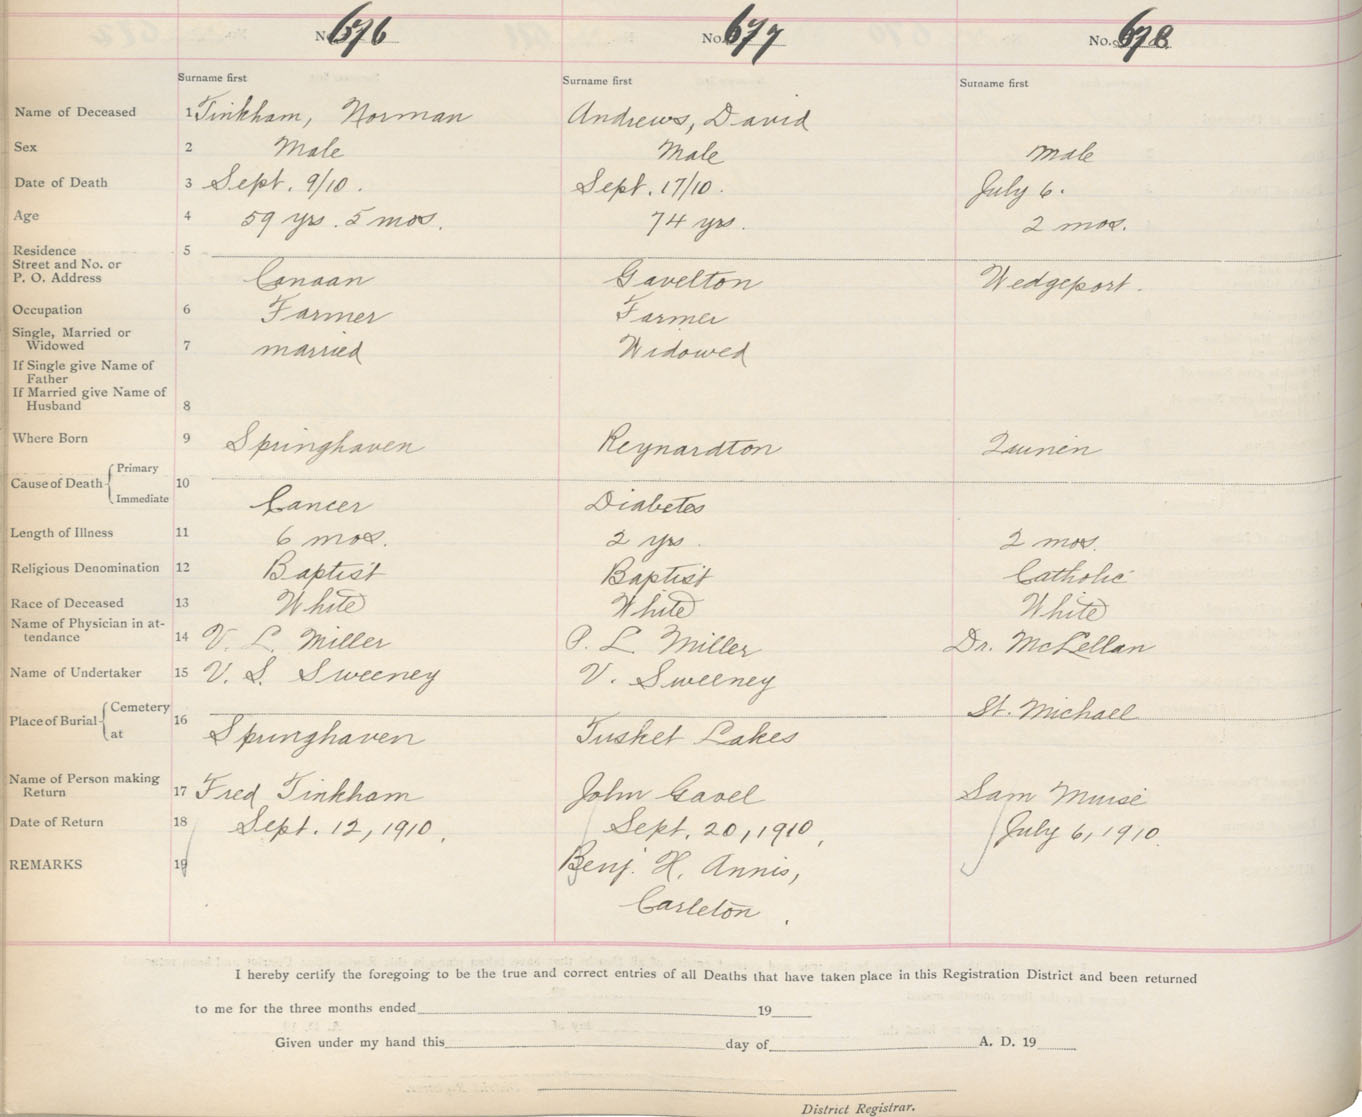 No. 676 No. 677 No. 678
Surname first Surname first Surname first
Name of Deceased 1 Tinkham, Norman Andrews, David
Sex 2 Male Male male
Date of Death 3 Sept. 9/10. Sept. 17/10. July 6.
Age 4 59 yrs. 5 mos. 74 yrs. 2 mos.
Residence 5
Street and No. or
P. O. Address Canaan Gavelton Wedgeport.
Occupation 6 Farmer Farmer
Single, Married or
Widowed 7 married Widowed
If Single give Name of
Father
If Married give Name of
Husband 8
Where Born 9 Springhaven Reynardton
Cause of Death Primary 10
Immediate Cancer Diabetes
Length of Illness 11 6 mos. 2 yrs. 2 mos.
Religious Denomination 12 Baptist Baptist Catholic
Race of Deceased 13 White White White
Name of Physician in at-
tendance 14 V. L. Miller P. L. Miller Dr. McLellan
Name of Undertaker 15 V. S. Sweeney V. Sweeney
Place of Burial Cemetery 16 St. Michael
at Springhaven Tusket Lakes
Name of Person making
Return 17 Fred Tinkham John Gavel Sam Muise
Date of Return 18 Sept. 12, 1910, Sept. 20, 1910, July 6, 1910.
REMARKS 19 Benj. H. Annis,
Carleton.
I hereby certify the foregoing to be the true and correct entries of all Deaths that have taken place in this Registration District and been returned
to me for the three months ended 19
Given under my hand this day of A. D. 19
District Registrar.